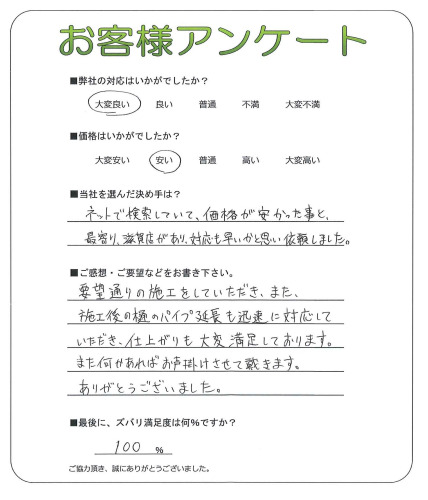 お客様アンケート
■弊社の対応はいかがでしたか?
大変良い 良い 普通 不満 大変不満
■価格はいかがでしたか?
大変安い 安い 普通 高い 大変高い
■当社を選んだ決め手は?
ネットで検索していて、価格が安かった事と、
最寄り、滋賀店があり、対応も早いかと思い依頼しました。
■ご感想・ご要望などをお書き下さい。
要望通りの施工をしていただき、また、
施工後の樋のパイプ延長も迅速に対応して
いただき、仕上がりも大変満足しております。
また何かあればお声掛けさせて戴きます。
ありがとうございました。
■最後に、ズバリ満足度は何%ですか?
100 %
ご協力頂き、誠にありがとうございました。